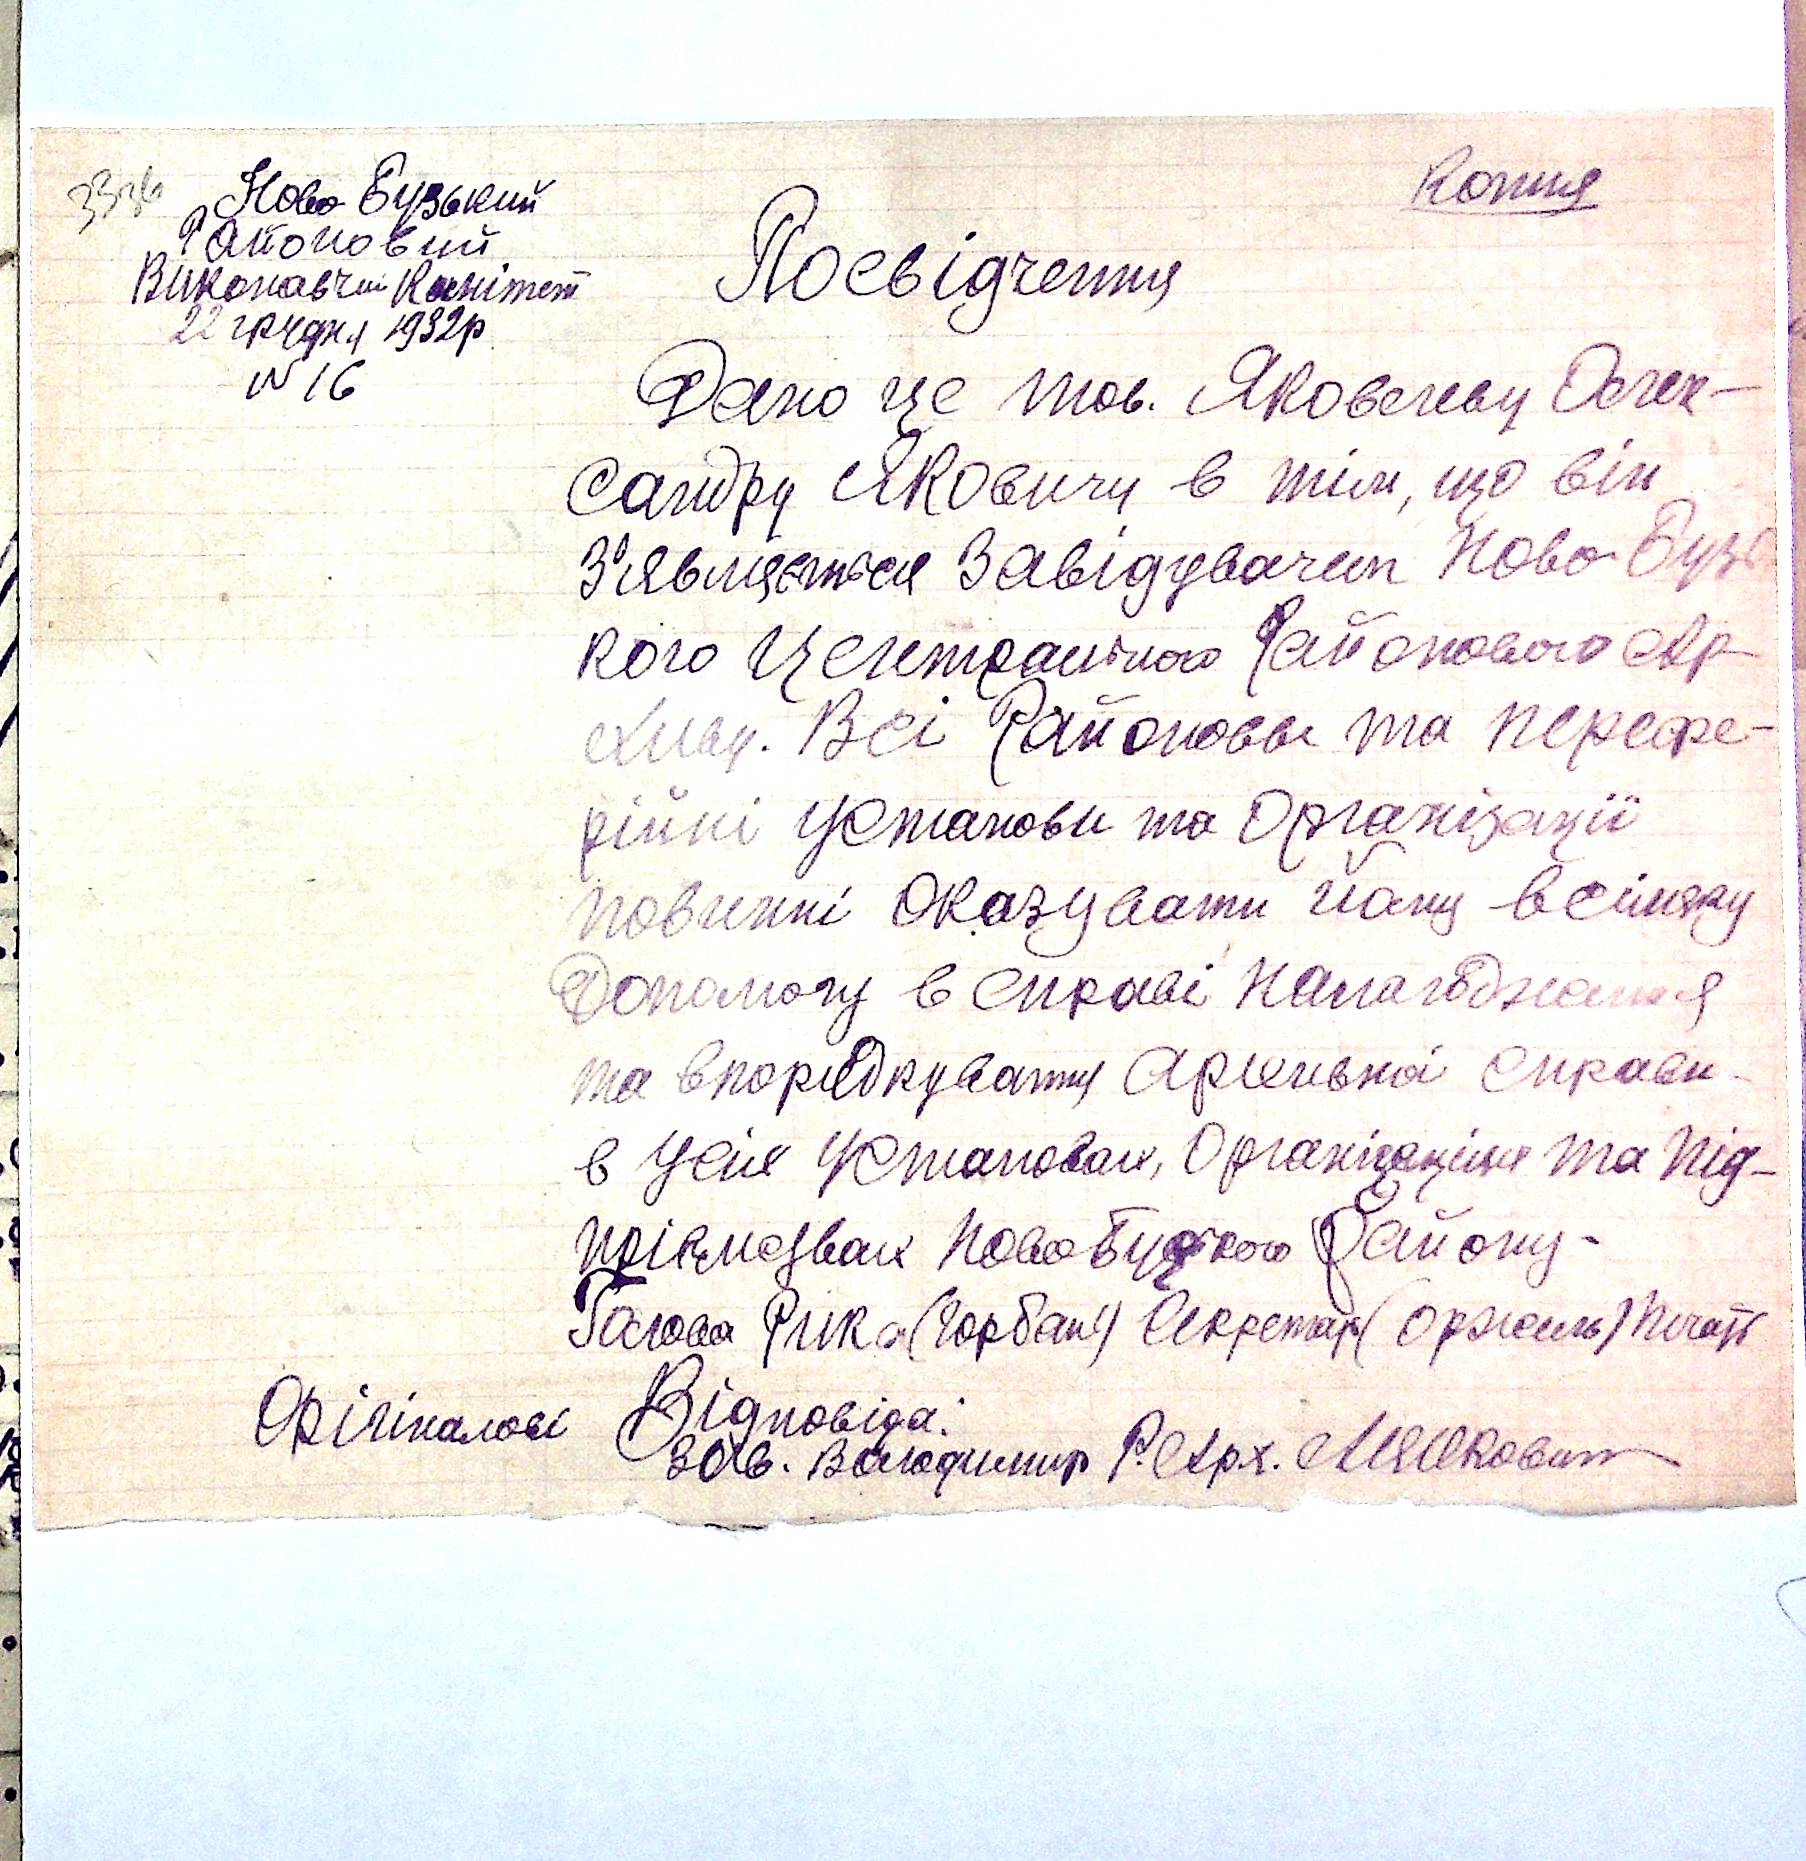 Копия
Ново Бузький
Районовий
Виконавчий Комітет
22 грудня 1932р
№ 16
Посвідчення
Дано це тов. Яковеньу Олек-
сандру Яковичу в тім, що він
З'являється Завідувачем Ново Бузь
кого Центрального Районового Ар
хиву. Всі Районові та перефе-
рійні Установи та Організації
повинні оказувати йому всіляку
Допомогу в справі налагодження
та впорядкування Архивної справи
в Усіх Установах, Організаціях та Під-
приємствах Ново Бузького Району-
Голова Рика (Горбань) Секретар (Оржель) Печать
Орігіналові Відповіда:
Зав. Володимир Р. Арх.